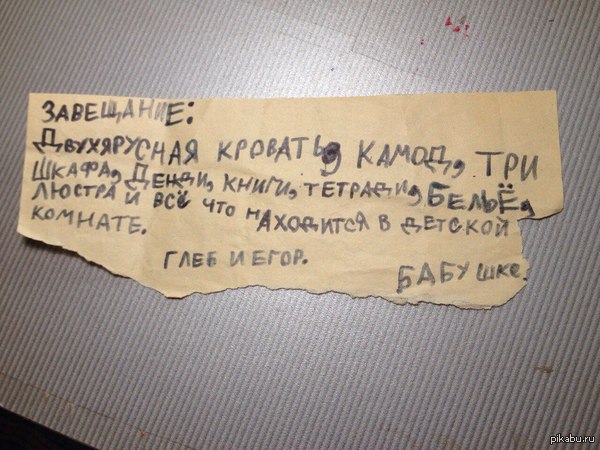 ЗАВЕЩАНИЕ:
ДВУХЯРУСНАЯ КРОВАТЬ, КАМОД, ТРИ
ШКАФА, ДЕНДИ, КНИГИ, ТЕТРАДИ, БЕЛЬЁ,
ЛЮСТРА И ВСЁ ЧТО НАХОДИТСЯ В ДЕТСКОЙ
КОМНАТЕ.
ГЛЕБ И ЕГОР.
БАБУШКЕ.
pikabu.ru